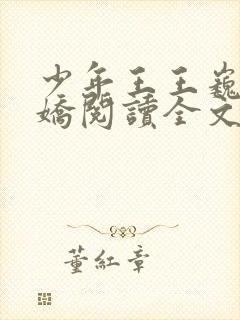 少年王王巍
嬌閱讀全文
董紅章